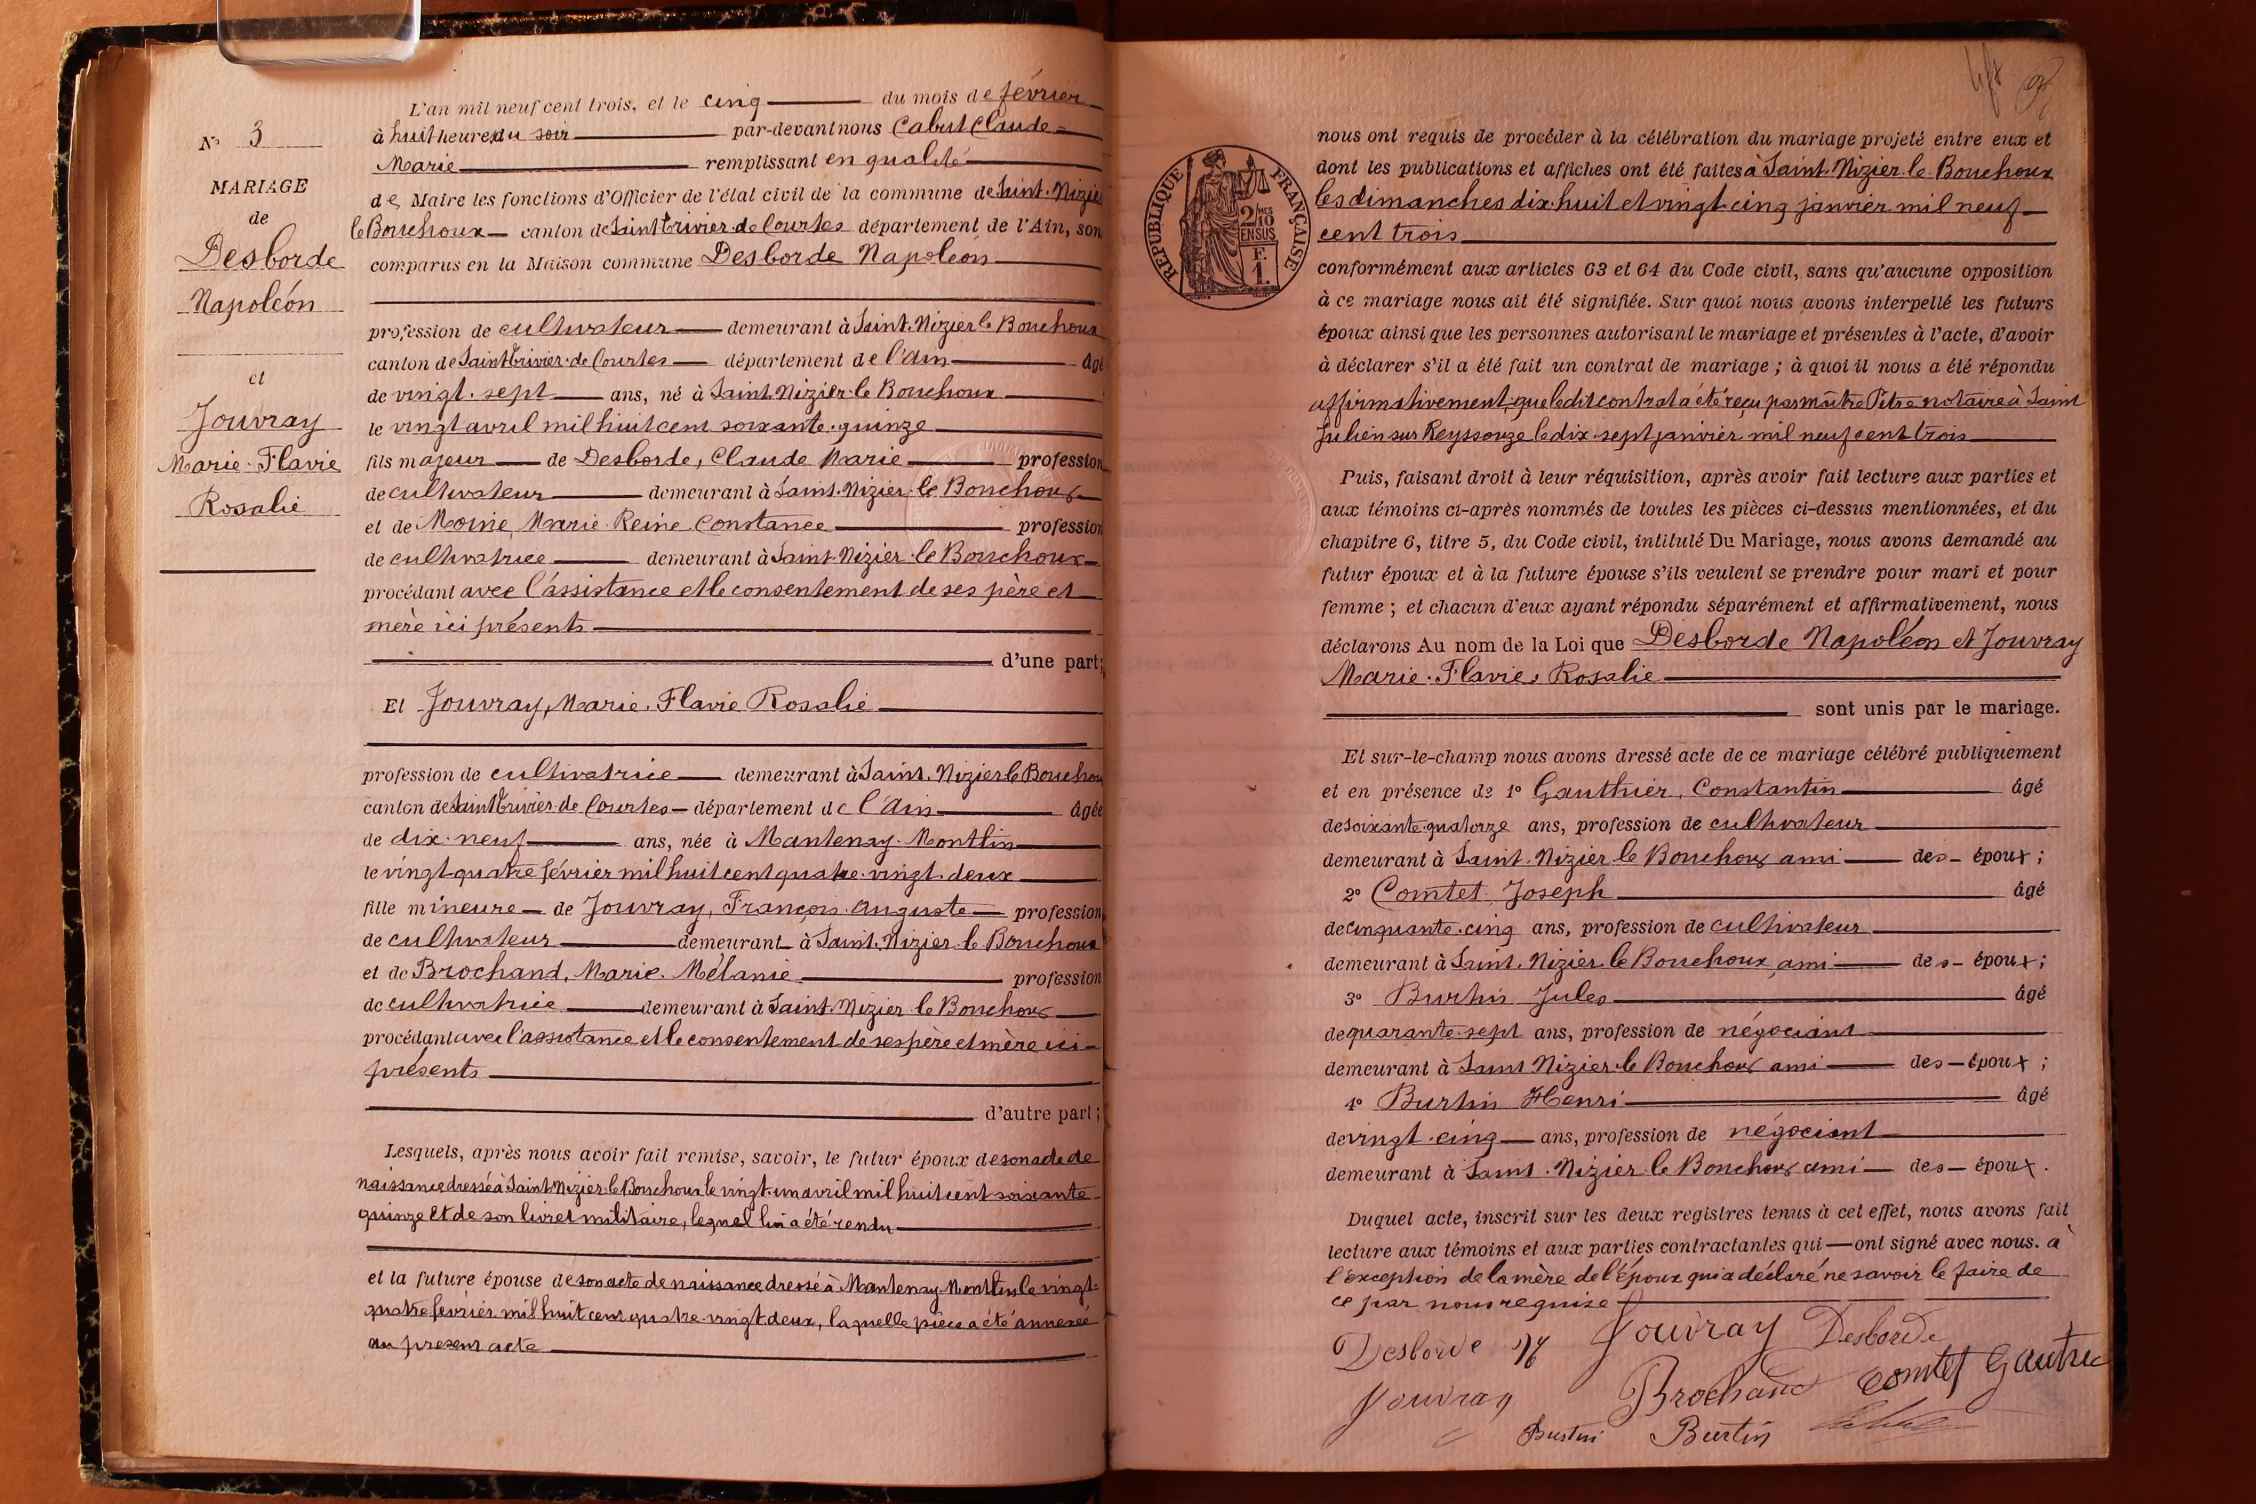 L'an mil neuf cent trois, et le cinq du mois de février
à huit heures du soir par-devant nous Cabut Claude
Marie remplissant en qualité
de Maire les fonctions d'Officier de l'état civil de la commune de Saint-Nizier
le Bouchoux canton de Saint Trivier-de Courtes département de l'Ain, son
comparus en la Maison commune Desborde Napoléon
profession de cultivateur demeurant à Saint-Nizier le Bouchoux
canton de Saint Trivier-de Courtes département de l'Ain âgé
de vingt-sept ans, né à Saint-Nizier-le Bouchoux
le vingt avril mil huit cent soixante-quinze
fils majeur de Desborde, Claude Marie profession
de cultivateur demeurant à Saint-Nizier-le Bouchoux
et de Moine, Marie-Reine Constance profession
de cultivatrice demeurant à Saint-Nizier-le Bouchoux
procédant avec l'assistance et le consentement de ses père et
mère ici présents
d'une part;
Et Jouvray, Marie-Flavie Rosalie
profession de cultivatrice demeurant à Saint-Nizier le Bouchou
canton de Saint Trivier-de Courtes département de l'Ain âgée
de dix-neuf ans, née à Mantenay-Montlin
le vingt-quatre février mil huit cent quatre-vingt-deux
fille mineure de Jouvray, François-Auguste profession
de cultivateur demeurant à Saint-Nizier-le Bouchoux
et de Brochand, Marie-Mélanie profession
de cultivatrice demeurant à Saint-Nizier-le Bouchoux
procédant avec l'assistance et le consentement de ses père et mère ici
présents
d'autre part;
Lesquels, après nous avoir fait remise, savoir, le futur époux de son acte de
naissance dressé à Saint-Nizier-le-Bouchoux le vingt-un avril mil huit cent soixante
quinze et de son livret militaire, lequel lui a été rendu
et la future épouse de son acte de naissance dressé à Mantenay-Montlin le vingt-
quatre février mil huit cent quatre-vingt deux, laquelle pièce a été annexée
au présent acte
No 3
MARIAGE
de
Desborde
Napoléon
et
Jouvray
Marie-Flavie
Rosalie
RÉPUBLIQUE FRANÇAISE
2/10mes
EN SUS
F.
1.
nous ont requis de procéder à la célébration du mariage projeté entre eux et
dont les publications et affiches ont été faites à Saint-Nizier-le-Bouchoux
les dimanches dix-huit et vingt-cinq janvier mil neuf
cent trois
conformément aux articles 63 et 64 du Code civil, sans qu'aucune opposition
à ce mariage nous ait été signifiée. Sur quoi nous avons interpellé les futurs
époux ainsi que les personnes autorisant le mariage et présentes à l'acte, d'avoir
à déclarer s'il a été fait un contrat de mariage ; à quoi il nous a été répondu
affirmativement, que ledit contrat a été reçu par maître notaire à Saint
Julien sur Reyssouze le dix-sept janvier mil neuf cent trois
Puis, faisant droit à leur réquisition, après avoir fait lecture aux parties et
aux témoins ci-après nommés de toutes les pièces ci-dessus mentionnées, et du
chapitre 6, titre 5, du Code civil, intitulé Du Mariage, nous avons demandé au
futur époux et à la future épouse s'ils veulent se prendre pour mari et pour
femme ; et chacun d'eux ayant répondu séparément et affirmativement, nous
déclarons Au nom de la Loi que Desborde Napoléon et Jouvray
Marie-Flavie, Rosalie
sont unis par le mariage.
Et sur-le-champ nous avons dressé acte de ce mariage célébré publiquement
et en présence de 1° Gauthier, Constantin âgé
de soixante-quatorze ans, profession de cultivateur
demeurant à Saint-Nizier-le Bouchoux ami des époux ;
2° Comtet Joseph âgé
de cinquante-cinq ans, profession de cultivateur
demeurant à Saint-Nizier-le Bouchoux ami des époux ;
3° Burtin Jules âgé
de quarante-sept ans, profession de négociant
demeurant à Saint Nizier-le Bouchoux ami des époux ;
4° Burtin Henri âgé
de vingt-cinq ans, profession de négociant
demeurant à Saint-Nizier le Bouchoux ami des époux.
Duquel acte, inscrit sur les deux registres tenus à cet effet, nous avons fait
lecture aux témoins et aux parties contractantes qui ont signé avec nous. à
l'exception de la mère de l'époux qui a déclaré ne savoir le faire de
ce par nous requise
Desborde Jouvray Desborde
Jouvray Brochand Comtet
Burtin Burtin